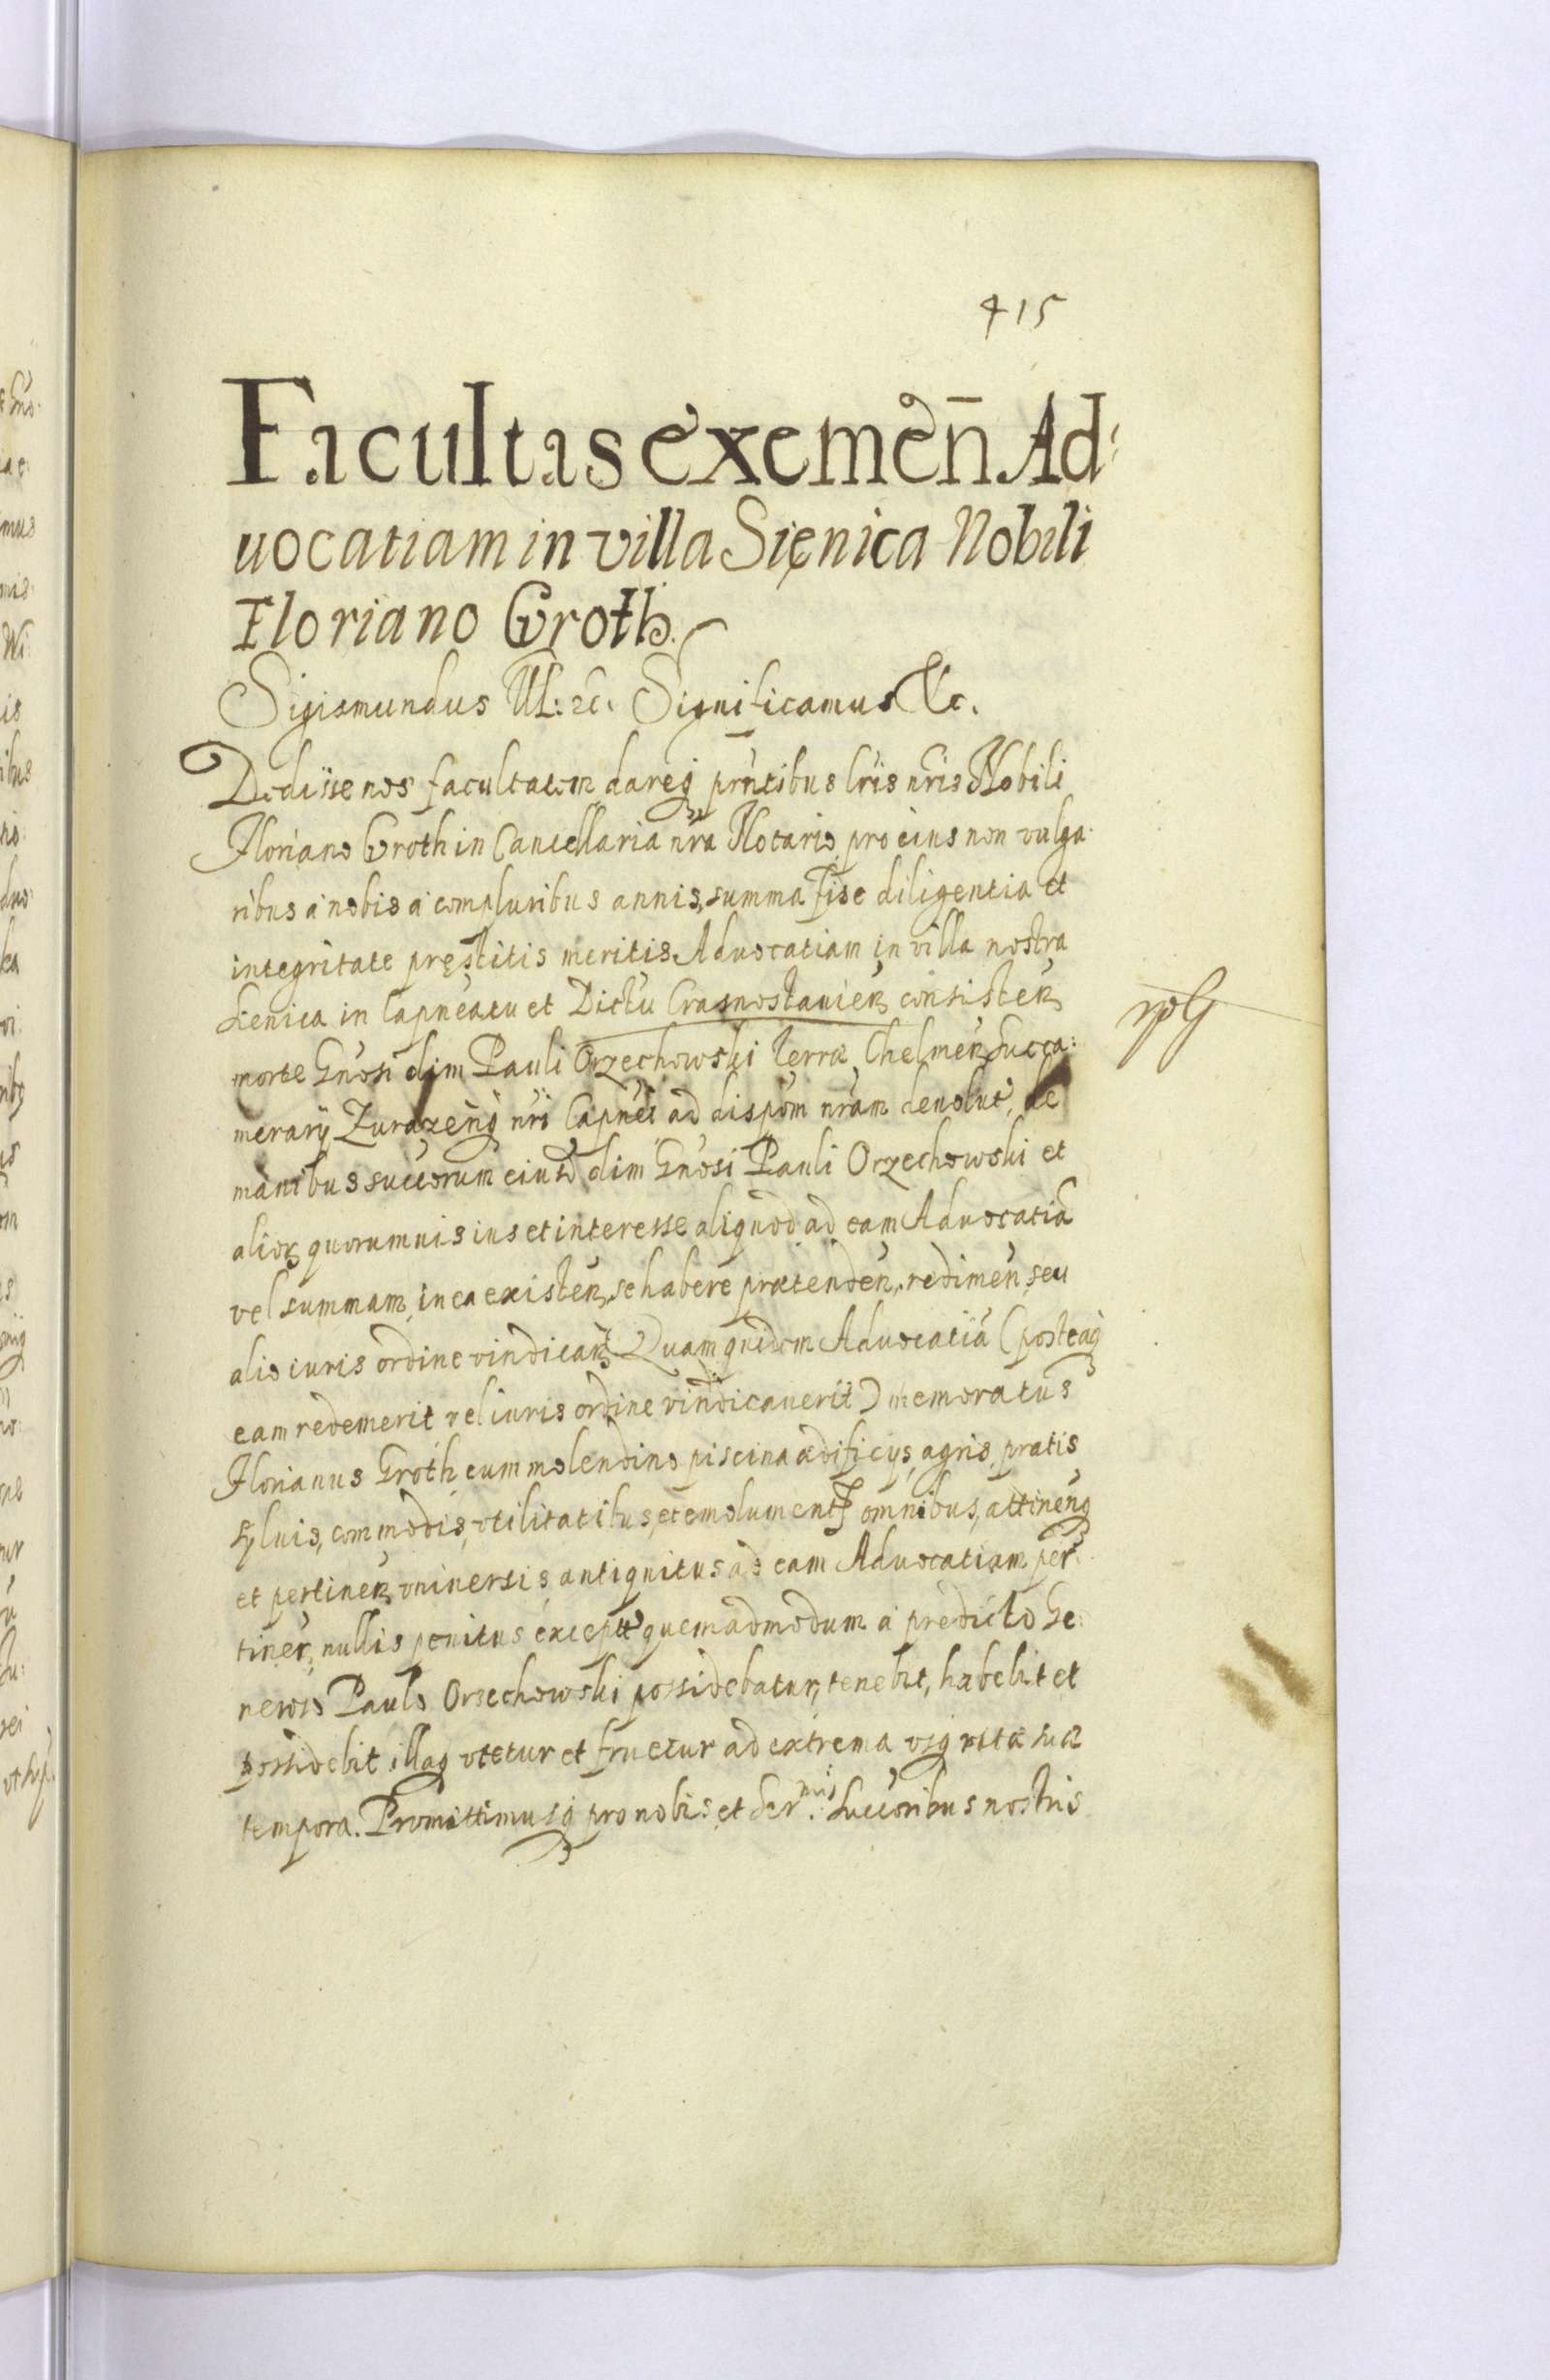 415
Facultas exemen̄ Ad:
uocatiam in villa Sienica Nobili
Floriano Groth.
Sigismundus III: etc. Significamus &c.
Dedisse nos facultatem dareq prntibus lris nris Nobili
Floriano Groth in Cancellaria nra Notario, pro eius non vulga:
ribus a nobis a compluribus annis, summa fise diligentia et
integritate prestitis meritis Aduocatiam in villa nostra
Sienica in Capneatu et Dictu Crasnostauien consisten
morte Gnosi olim Pauli Orzechowski terræ Chelmen Succa:
merarij Zurazenq nri Capnei ad dispom nram deuolut, de
manibus succorum eiusd olim Gnosi Pauli Orzechowski et
alior quorumuis ius et interesse aliquod ad eam Aduocatia
vel summam in ea existen, se habere prætenden, redimen, seu
alio iuris ordine vindican. Quam quidem Aduocatia (posteaq
eam redemerit vel iuris ordine vindicauerit) memoratus
Florianus Groth cum molendino piscina ædificijs, agris, pratis,
syluis, commodis, vtilitatibus, et emolument omnibus, attinenq
et pertinen, vniuersis, antiquitus ad eam Aduocatiam per:
tinen, nullis penitus except quemadmodum a predicto Ge:
neroso Paulo Orzechowski possidebatur, tenebit, habebit et
possidebit, illaq vtetur et fruetur ad extrema vsq vitæ suæ
tempora. Promittimusq pro nobis et Ser.mis Succoribus nostris